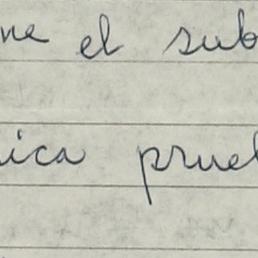 ne el sub
ica prue